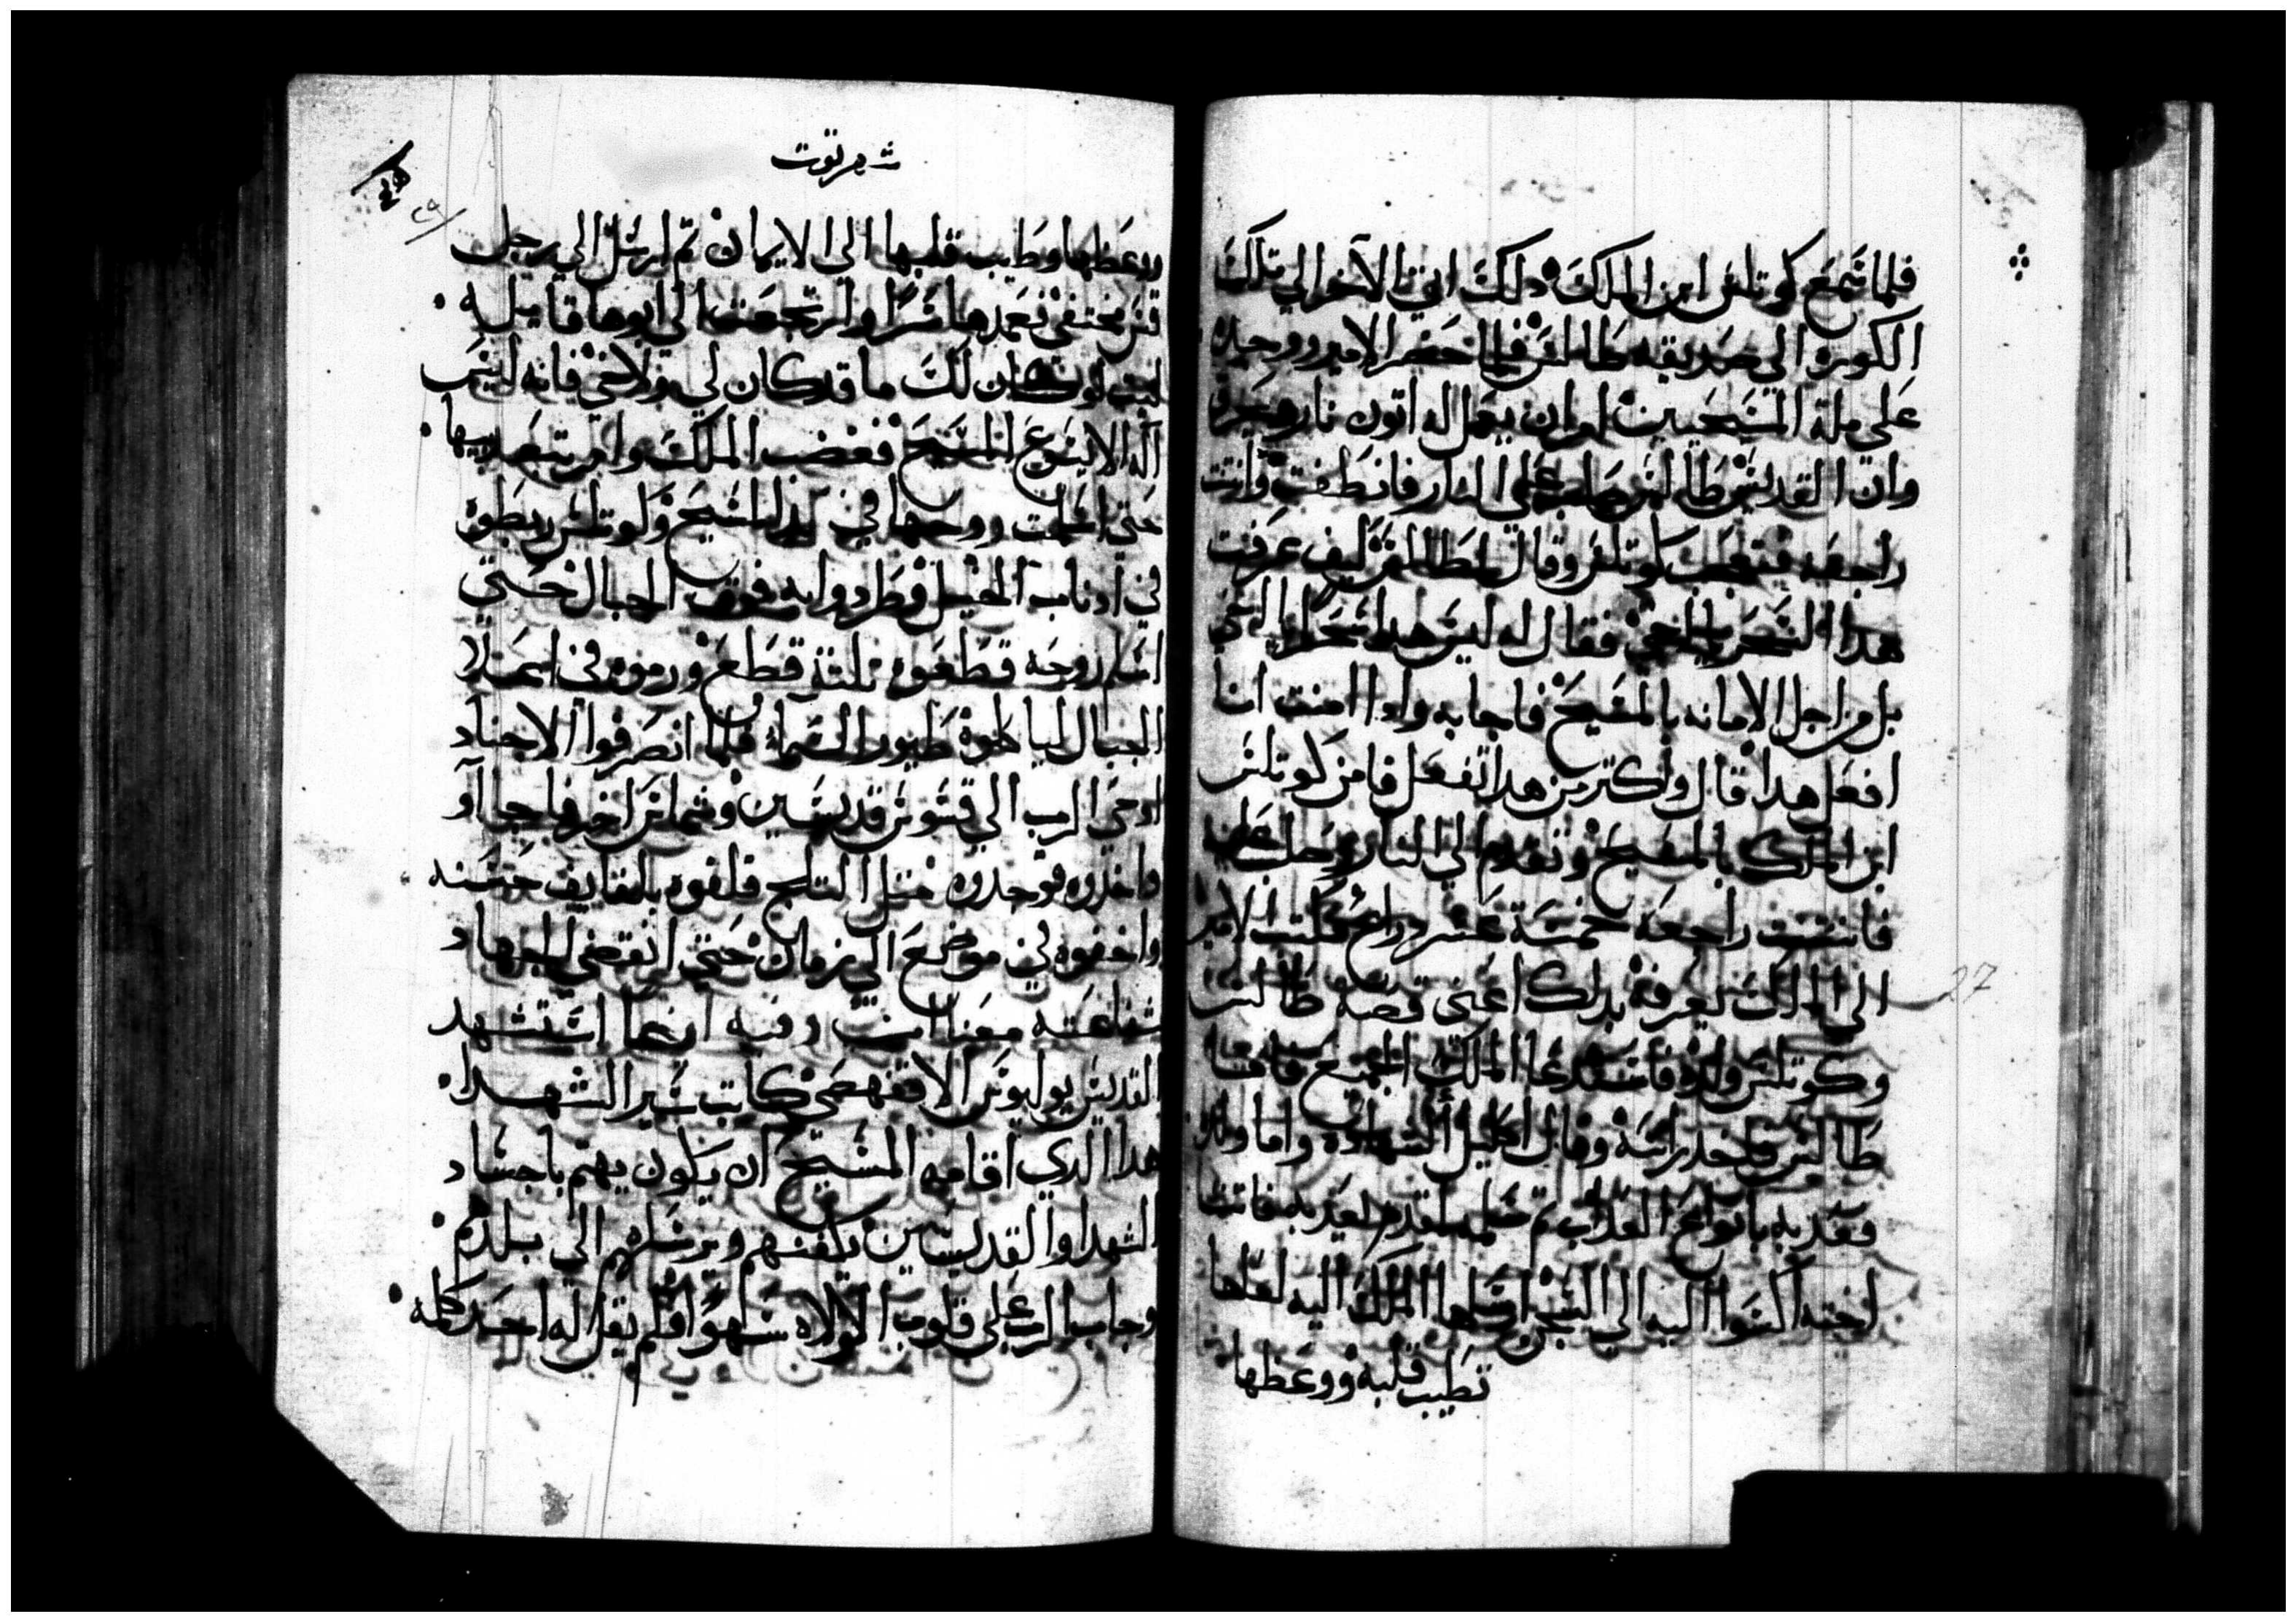 فلما سمع كوتلس ابن الملك دلك اتي الاخر الي تلك
الكورة الي صديقه طاطس فلما حضر الامير ووجده
على ملة المسيحيين امر ان يعمل له اتون نار
وان القديس طاطس صلب على النار فانطفت وانتنت
راجعه فتعجب كوتلس وقال لطاطس كيف عرفت
هدا السحر يا اخي فقال له ليس هدا سحرا يا اخي
بل من اجل الامانه بالمسيح فاجابه وادا امنت انا
افعل هدا قال واكتر من هدا تفعل فامن كوتلس
ابن الملك بالمسيح وتقدم الي النار وصلب عليها
فانتنت راجعه خمسة عشر دراع فكتب الامير
الي الملك يعرفه بدلك اعني قصة طاطس
27
وكوتلس ولده فاستدعا الملك الجميع
طاطس فاخد راسه ونال اكليل الشهاده واما ولده
فعدبه بانواع العداب تم فاتت
اخته اليه الي السجن ارسلها الملك اليه لعلها
تطيب قلبه ووعظها
شهر توت
ووعظها وطيب قلبها الي الايمان تم ارسل الي رجل
قس مختفي فعمدها سرا وارتجعت الي ابوها قايله
ليت لو كان لك ما قد كان لي ولاخي فانه ليس
اله الا ايسوع المسيح فغضب الملك وامر بتعديبها
حتى اسلمت روحها في يد المسيح وكوتلس ربطوه
في ادناب الخيل وطردوا به فوق الجبال حتي
اسلم روحه قطعوه تلتة قطع ورموه في
الجبال لياكلوه طيور السما فلما انصرفوا الاجناد
اوحي الرب الي قسوس قديسين وشماس اخر فجاآو
واخدوه فوجدوه متل التلج فلفوه بلفايف حسنه
واخفوه في موضع الي زمان حتي انقضي الجهاد
شفاعته معنا امين وفيه ايضا استشهد
القديس يوليوس الاقفهصي كاتب سير الشهدا
هدا الدي اقامه المسيح ان يكون يهتم باجساد
الشهدا والقديسين يكفنهم ويرسلهم الي بلدهم
وجاب الرب على قلوب الولاه سهوا فلم يقل له احد كلمه